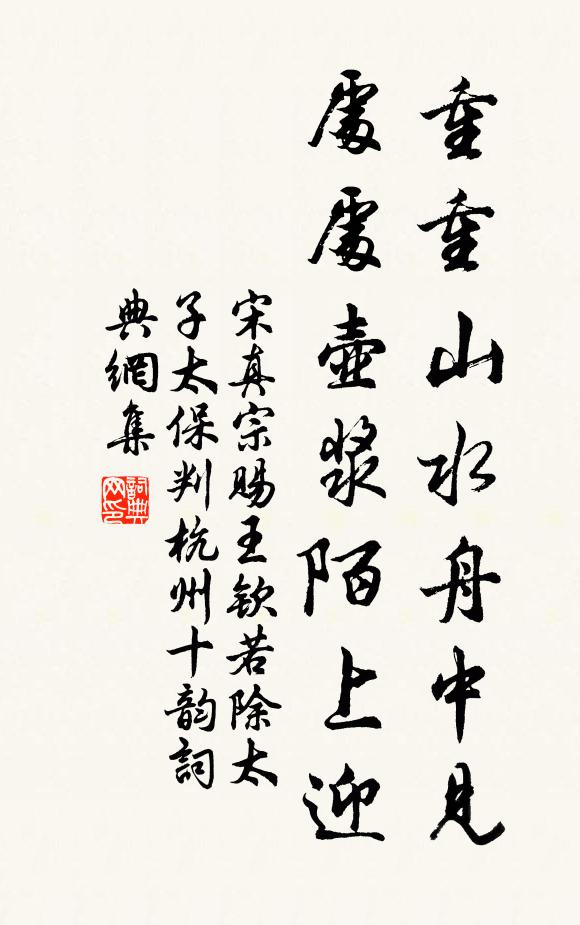 重重山水舟中見
處處壺漿陌上迎
宋真宗賜王欽若除太
子太保判杭州十韵詞
典網集
詞典
网印